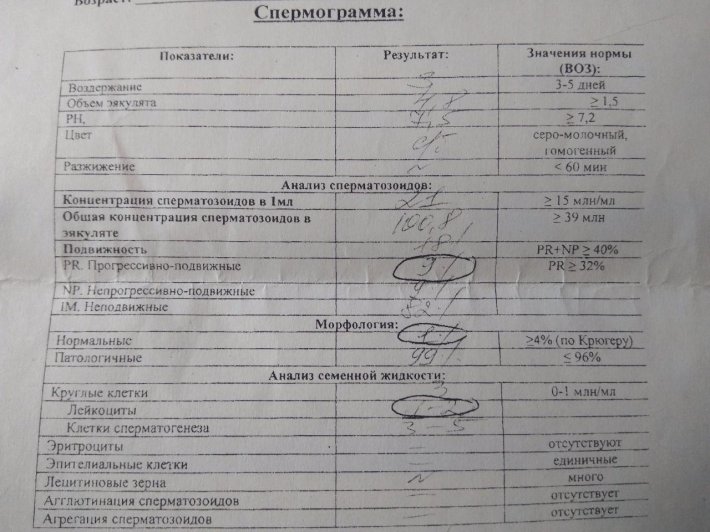 Возраст:
Спермограмма:
Показатели: Результат: Значения нормы (ВОЗ):
Воздержание 3 3-5 дней
Объем эякулята 4,8 ≥ 1,5
PH, 7,5 ≥ 7,2
Цвет серо-молочный, гомогенный
Разжижение ~ < 60 мин
Анализ сперматозоидов:
Концентрация сперматозоидов в 1мл 21 ≥ 15 млн/мл
Общая концентрация сперматозоидов в эякуляте 100,8 ≥ 39 млн
Подвижность 18% PR+NP ≥ 40%
PR. Прогрессивно-подвижные 9% PR ≥ 32%
NP. Непрогрессивно-подвижные
IM. Неподвижные 82%
Морфология:
Нормальные 1% ≥4% (по Крюгеру)
Патологичные 99% ≤ 96%
Анализ семенной жидкости:
Круглые клетки 3 0-1 млн/мл
Лейкоциты 1-2
Клетки сперматогенеза 3-5
Эритроциты — отсутствуют
Эпителиальные клетки — единичные
Лецитиновые зерна ~ много
Агглютинация сперматозоидов — отсутствует
Агрегация сперматозоидов — отсутствует